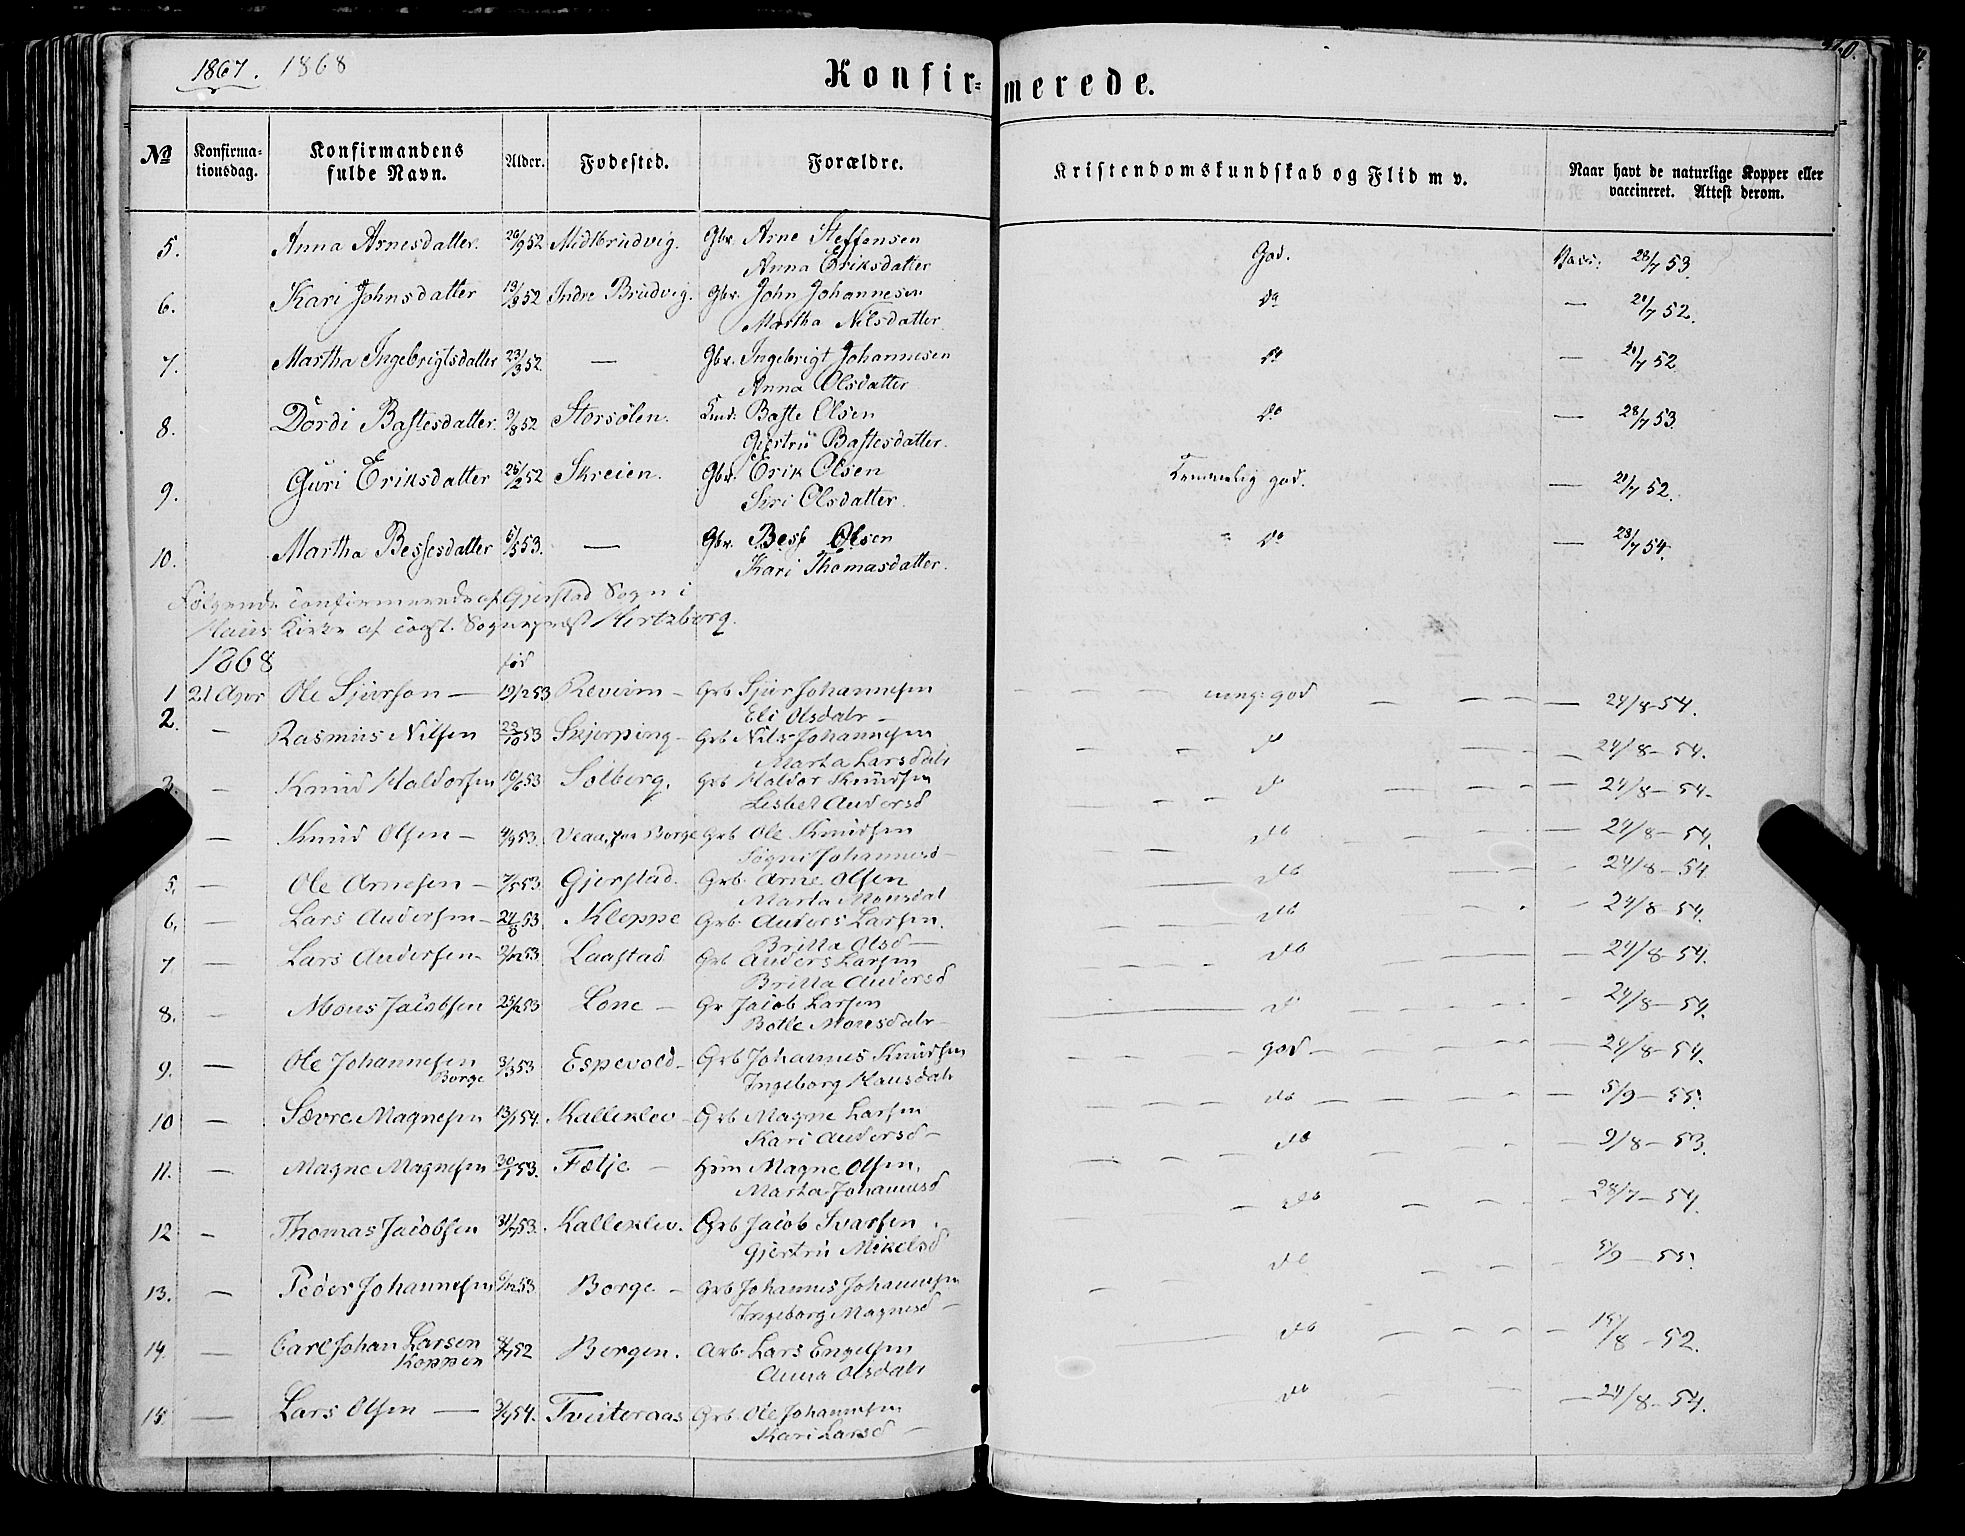 1867. 1868
Konfir- merede.
№ Konfirmationsdag. Konfirmandens fulde Navn. Alder. Fødested. Forældre. Kristendomskundskab og Flid m v. Naar havt de naturlige Kopper eller vaccineret. Attest derom.
5. Anna Arnesdatter. 26/9 52 Midtbrudvig. Gbr. Arne Steffensen God. Vacc. 28/7 53.
Anna Eriksdatter
6. Kari Johnsdatter 13/9 52 Indre Brudvig. Gbr. John Johannesen do — 21/7 52.
Martha Nilsdatter
7. Martha Ingebrigtsdatter 23/3 52 — Gbr. Ingebrigt Johannesen do — 21/7 52
Anna Olsdatter
8. Dordi Bastesdatter. 3/8 52 Storsølen. Baste Olsen do — 28/7 53.
Gjertrü Bastesdatter.
9. Guri Eriksdatter 26/2 52 Skreien. Gbr. Erik Olsen Temmelig god. — 21/7 52.
Siri Olsdatter.
10. Martha Bessesdatter 5/5 53. — Gbr. Bess Olsen do — 28/7 54.
Kari Thomasdatter.
Følgende confirmerede af Gjerstad Sogn i
Haus Kirke af const. Sognepræst Hertzberg.
1868 fød
1 21 Apr Ole Sjurson — 19/12 53 Revurm — Grb Sjur Johannesen meg: god — 24/8 54.
Eli Olsdatr —
2. — Rasmus Nilsen 22/10 53 Skjerping — Grb Nils Johannesen do 24/8 — 54.
Marta Larsdatr
3. — Knud Haldorsen 16/6 53 Solberg. Grb Haldor Knudsen do 24/8 — 54.
Lisbet Andersd
— Knud Olsen — 4/9 53. Borge Grb Ole Knudsen do — 24/8 — 54.
Søgni Johannesd —
5. — Ole Arnesen — 7/5 53. Gjerstad. Grb. Arne Olsen do — 24/8 — 54.
Marta Monsdat
6. — Lars Andersen — 24/8 53. Kleppe Grb. Anders Larsen. do 24/8 — 54.
Britta Olsd —
7 — Lars Andersen 2/12 53. Laastad Grb Anders Larsen do — 24/8 — 54.
Britta Andersd
8. — Mons Jacobsen 25/12 53 Lone — Gr Jacob Larsen do 24/8 — 54.
Botle Monsdatr —
9. — Ole Johannesen Borge 3/3 53 Espevold — Grb Johannes Knudsen — god — 24/8 — 54.
Ingeborg Hansdatr
10 — Sævre Magnesen 13/1 54. Kalleklev — Grb Magne Larsen do 5/9 — 55.
Kari Andersd —
11. — Magne Magnesen 30/1 53. Fætje — Húm Magne Olsen. do 9/8 — 53.
Marta Johannesd
12 — Thomas Jacobsen 53. Kalleklev. Grb Jacob Ivarsen. do 28/7 — 54.
Gjertru Mikelsd
13. — Peder Johannesen 6/12 53 Borge — Grb Johannes Johannesen do 5/9 — 55.
Ingeborg Magnesd —
14. — Carl Johan Larsen Koppen 52 Bergen. Arb. Lars Engelsen do 15/8 — 52.
Anna Olsdatr
15 — Lars Olsen — 54. Tveiteraas Grb. Ole Johannesen do — 24/8 — 54.
Kari Larsd —